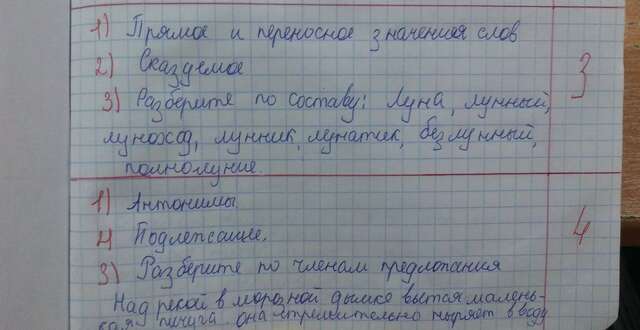 1) Прямое и переносное значения слов
2) Сказуемое
3
3) Разберите по составу: Луна, лунный,
луноход, лунник, лунатик, безлунный,
полнолуние.
1) Антонимы
4
2) Подлежащие.
3) Разберите по членам предложения
Над рекой в морозной дымке вьётся малень-
кая пичуга она стремительно ныряет в воду